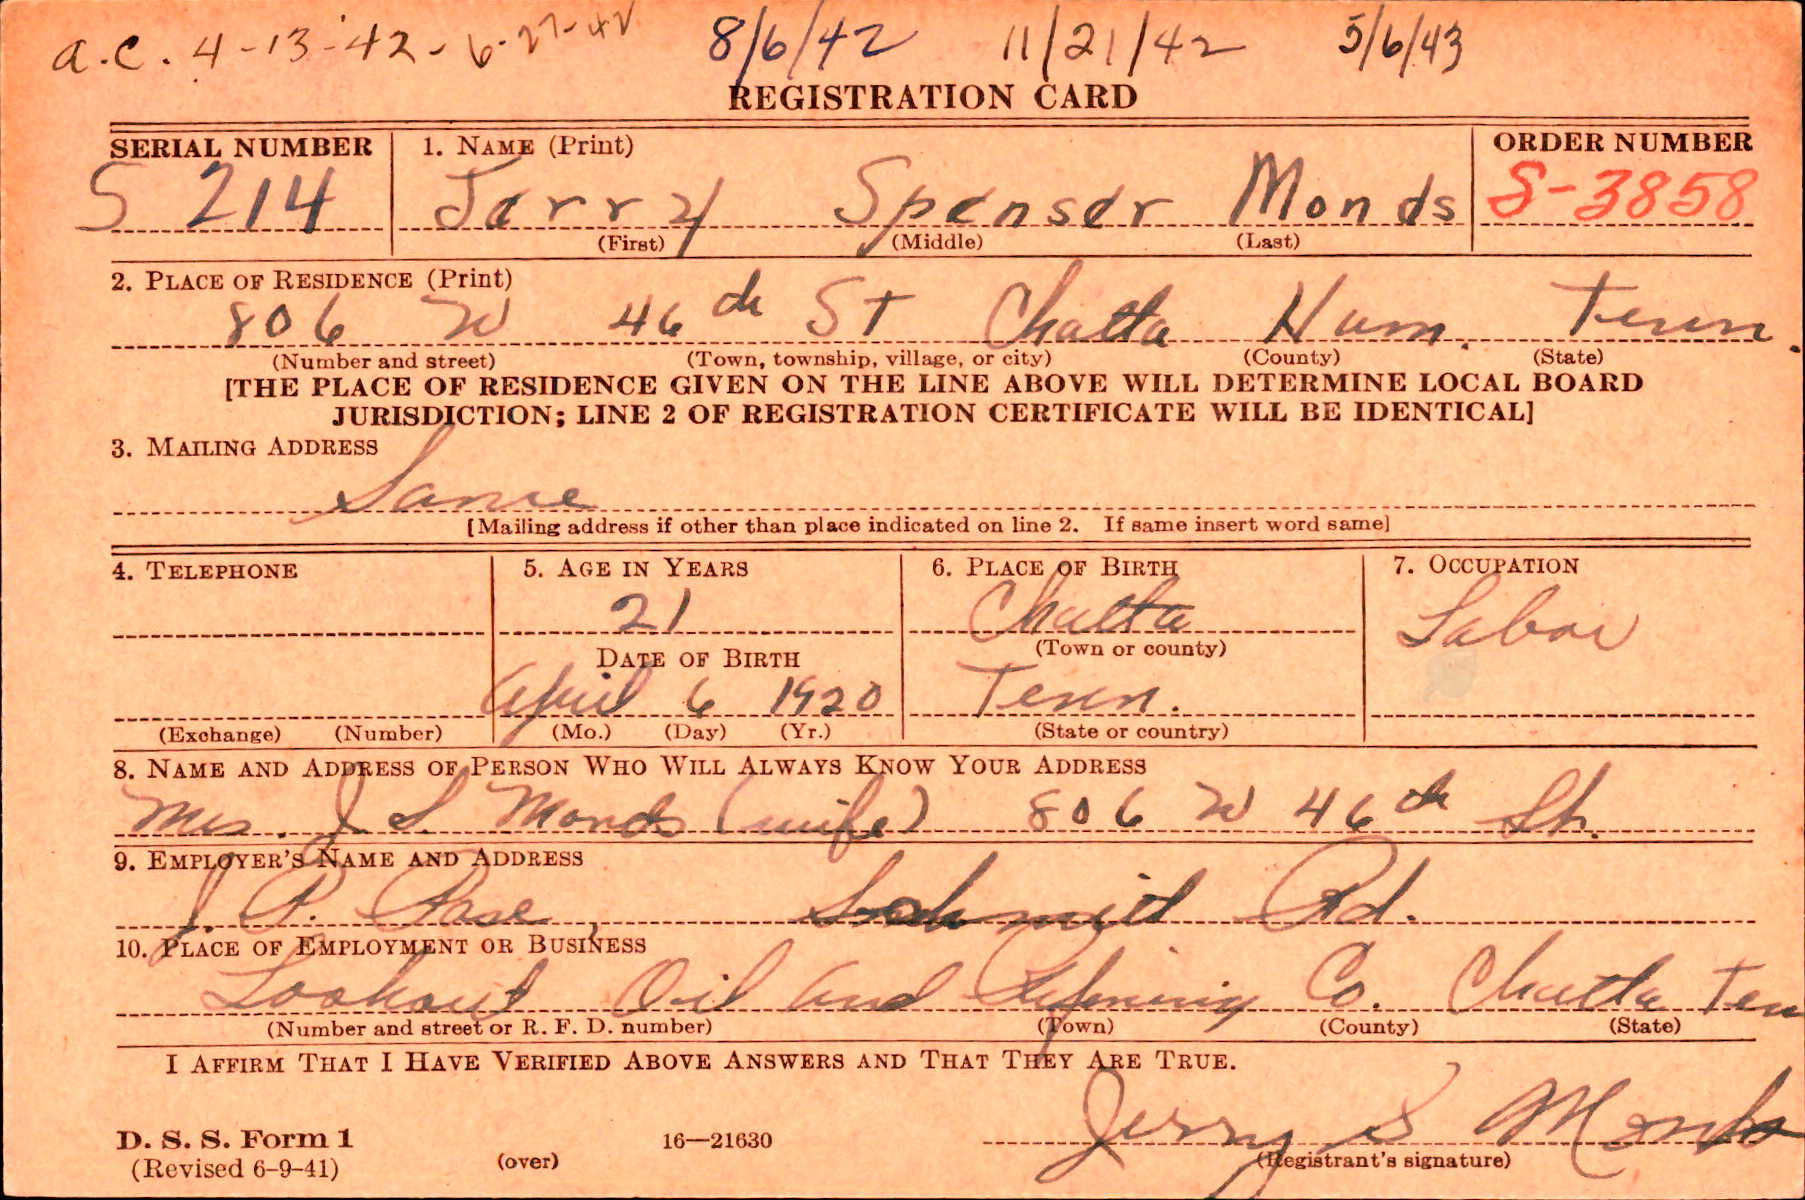 a.c. 4-13-42- 6-27-42 8/6/42 11/21/42 5/6/43
REGISTRATION CARD
SERIAL NUMBER 1. NAME (Print) ORDER NUMBER
S 214 Jerry Spenser Monds S-3858
(First) (Middle) (Last)
2. PLACE OF RESIDENCE (Print)
806 W 46th ST Chatta Ham. Tenn.
(Number and street) (Town, township, village, or city) (County) (State)
[THE PLACE OF RESIDENCE GIVEN ON THE LINE ABOVE WILL DETERMINE LOCAL BOARD
JURISDICTION; LINE 2 OF REGISTRATION CERTIFICATE WILL BE IDENTICAL]
3. MAILING ADDRESS
Same
[Mailing address if other than place indicated on line 2. If same insert word same]
4. TELEPHONE 5. AGE IN YEARS 6. PLACE OF BIRTH 7. OCCUPATION
21 Chatta Labor
DATE OF BIRTH (Town or county)
April 6 1920 Tenn.
(Exchange) (Number) (Mo.) (Day) (Yr.) (State or country)
8. NAME AND ADDRESS OF PERSON WHO WILL ALWAYS KNOW YOUR ADDRESS
Mrs. J. S. Monds (wife) 806 W 46th St.
9. EMPLOYER'S NAME AND ADDRESS
J. P. Rd.
10. PLACE OF EMPLOYMENT OR BUSINESS
Lookout Oil and Refining Co. Chatta Ten
(Number and street or R. F. D. number) (Town) (County) (State)
I AFFIRM THAT I HAVE VERIFIED ABOVE ANSWERS AND THAT THEY ARE TRUE.
Jerry S Monds
D. S. S. Form 1 16—21630
(Revised 6-9-41) (over) (Registrant's signature)